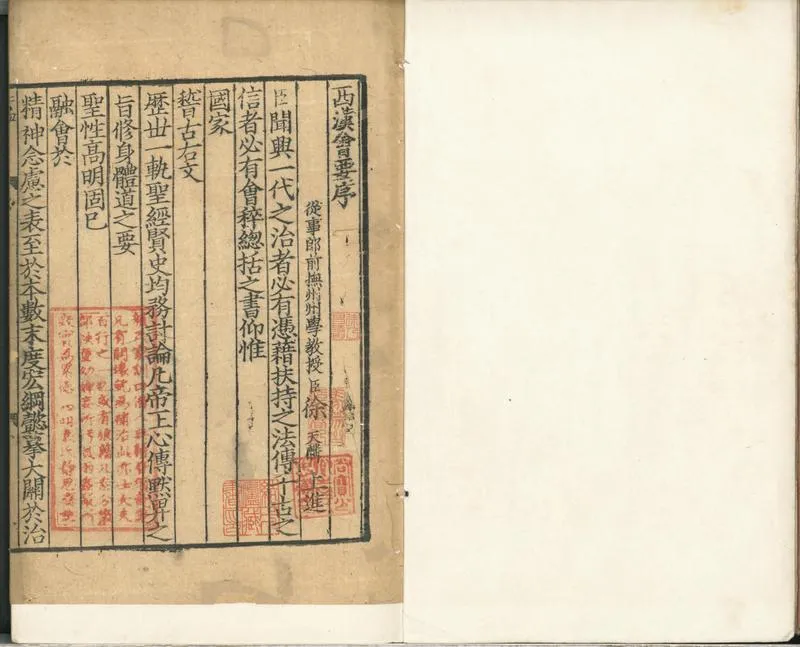 西漢會要序
從事郎前撫州州學教授臣徐天麟上進
臣聞興一代之治者必有憑藉扶持之法傳千古之
信者必有會稡緫括之書仰惟
國家
稽古右文
歷丗一軌聖經賢史均務討論凡帝王心傳黙畀之
旨修身體道之要
聖性高明固已
融會於
精神念慮之表至於本數末度宏綱懿摹大闗於治